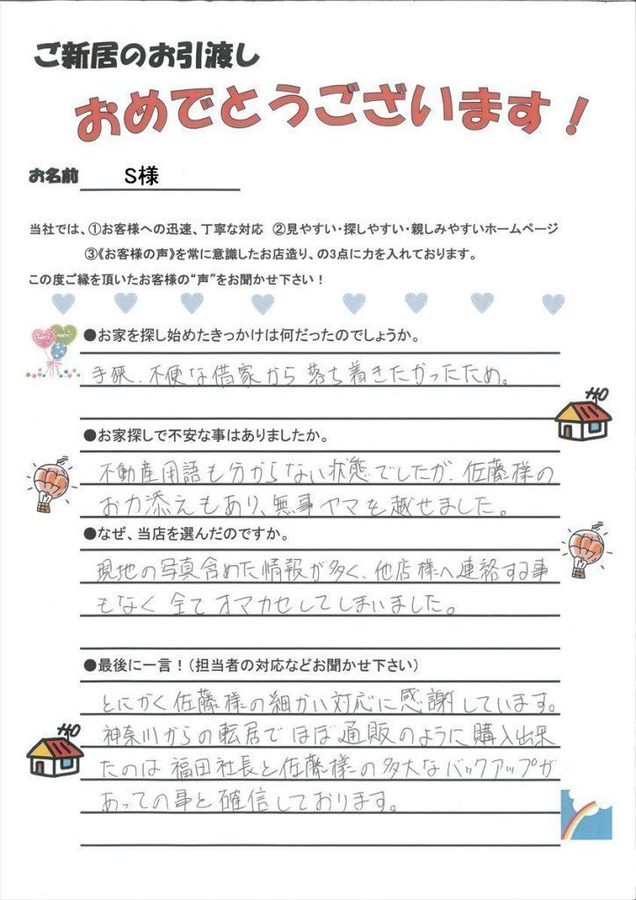 ご新居のお引渡し
おめでとうございます！
お名前 S様
当社では、①お客様への迅速、丁寧な対応 ②見やすい・探しやすい・親しみやすいホームページ
③《お客様の声》を常に意識したお店造り、の3点に力を入れております。
この度ご縁を頂いたお客様の“声”をお聞かせ下さい！
●お家を探し始めたきっかけは何だったのでしょうか。
手狭、不便な借家から落ち着きたかったため。
●お家探しで不安な事はありましたか。
不動産用語も分からない状態でしたが、佐藤様の
お力添えもあり、無事ヤマを越せました。
●なぜ、当店を選んだのですか。
現地の写真含めた情報が多く、他店様へ連絡する事
もなく全てオマカセしてしまいました。
●最後に一言！（担当者の対応などお聞かせ下さい）
とにかく佐藤様の細かい対応に感謝しています。
神奈川からの転居でほぼ通販のように購入出来
たのは福田社長と佐藤様の多大なバックアップが
あっての事と確信しております。